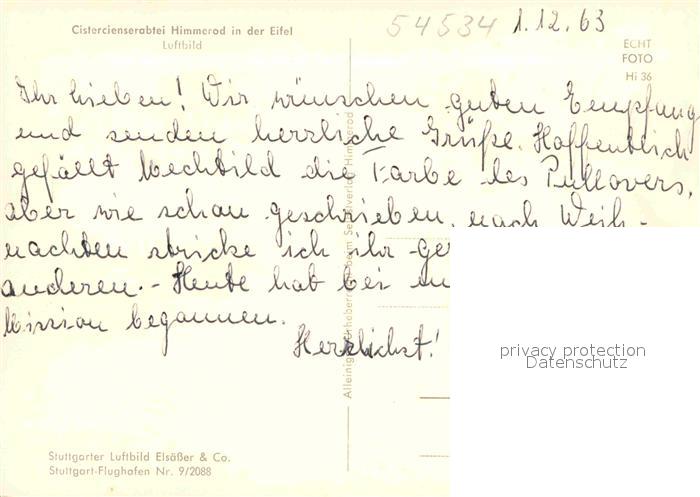 Cistercienserabtei Himmerod in der Eifel
Luftbild
54534
1.12.63
ECHT
FOTO
Hi 36
Ihr Lieben! Wir wünschen guten Empfang
und senden herzliche Grüße. Hoffentlich
gefällt Mechtild die Farbe des Pullovers,
aber wie schon geschrieben, nach Weih-
nachten stricke ich ihr ger
anderen. - Heute hat bei un
Mission begonnen.
Herzlichst!
privacy protection
Datenschutz
Stuttgarter Luftbild Elsäßer & Co.
Stuttgart-Flughafen Nr. 9/2088